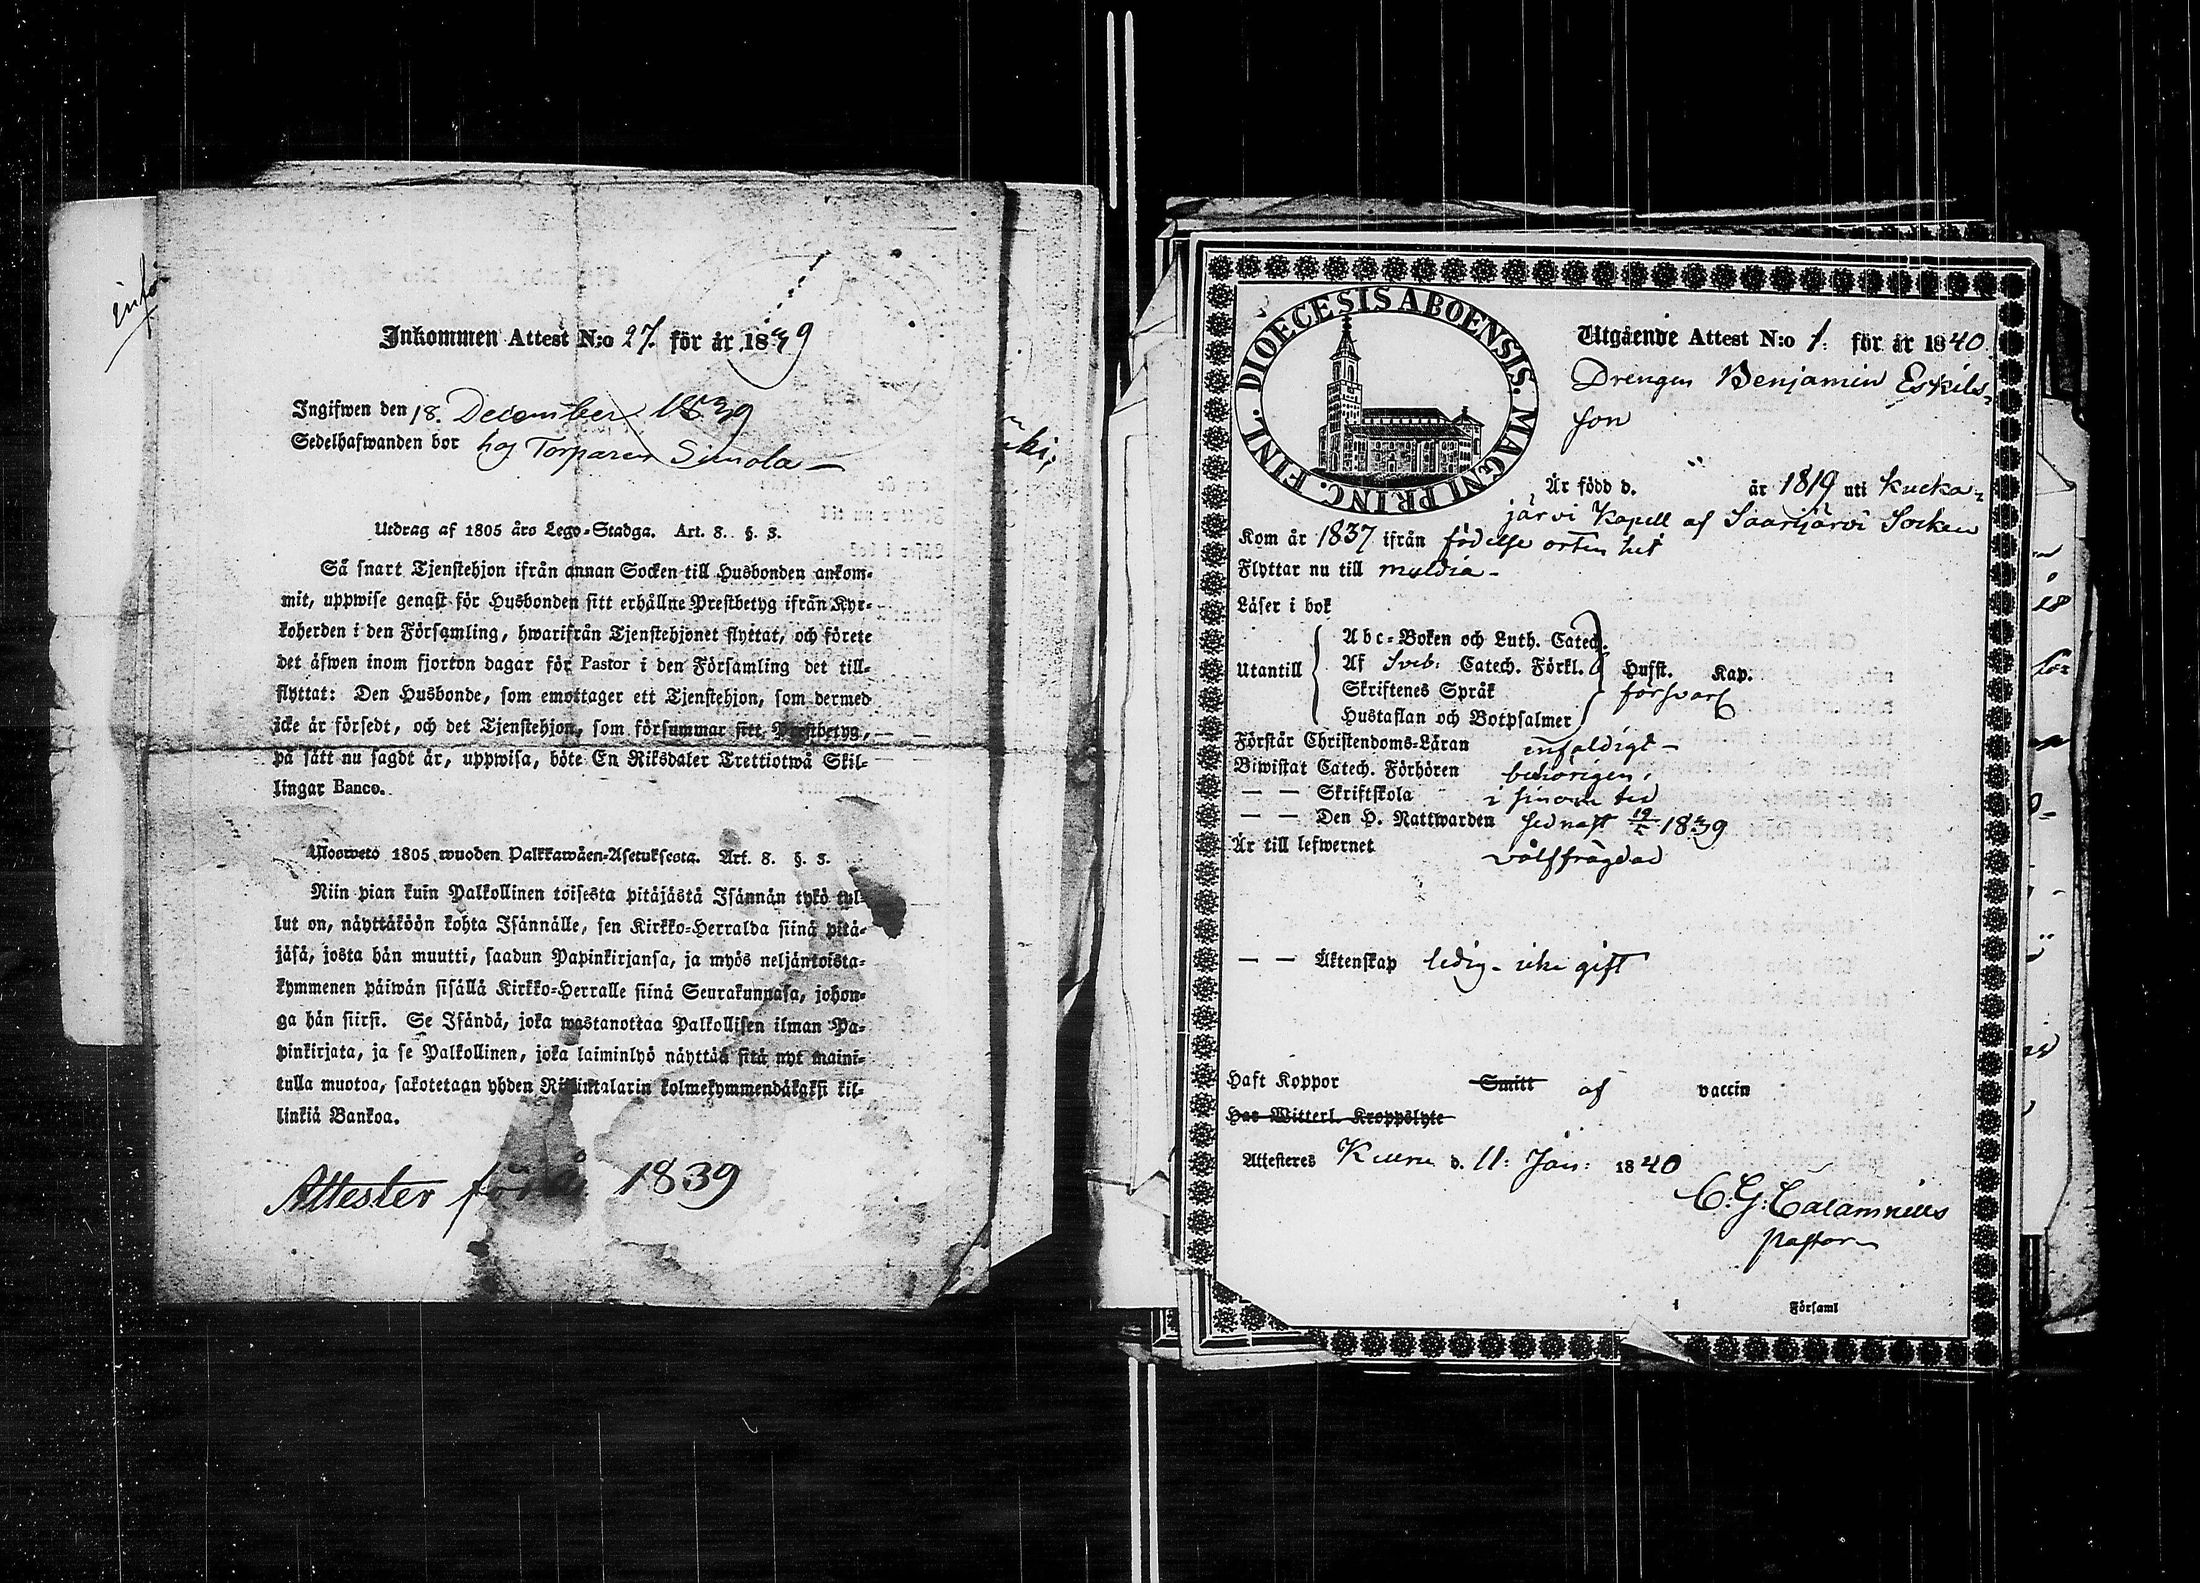 Inkommen Attest N:o 27. för år 1839
Ingifwen den 18. December 1839
Sedelhafwanden bor hos Torparen Simola
Utdrag af 1805 års Lego-Stadga. Art. 8. §. 3.
Så snart Tjenstehjon ifrån annan Socken till Husbonden ankom-
mit, uppwise genast för Husbonden sitt erhållne Prestbetyg ifrån Kyr-
koherden i den Församling, hwarifrån Tjenstehjonet flyttat, och förete
det äfwen inom fjorton dagar för Pastor i den Församling det till-
flyttat: Den Husbonde, som emottager ett Tjenstehjon, som dermed
icke är försedt, och det Tjenstehjon, som försummar sitt Prestbetyg,
på sätt nu sagdt är, uppwisa, böte En Riksdaler Trettiotwå Skil-
lingar Banco.
Ulosweto 1805 wuoden Palkkawäen-Asetuksesta. Art. 8. §. 3.
Niin pian kuin Palkollinen toisesta pitäjästä Isännän tykö tul-
lut on, näyttäköön kohta Isännälle, sen Kirkko-Herralda siinä pitä-
jäsä, josta hän muutti, saadun Papinkirjansa, ja myös neljäntoista-
kymmenen päiwän sisällä Kirkko-Herralle siinä Seurakunnasa, johon-
ga hän siirsi. Se Isändä, joka wastanottaa Palkollisen ilman Pa-
pinkirjata, ja se Palkollinen, joka laiminlyö näyttää sitä nyt maini-
tulla muotoa, sakotetaan yhden Riikintalarin kolmekymmendäkaksi kil-
linkiä Bankoa.
Attester för år 1839
DIOECESIS ABOENSIS. MAGNI PRINC. FINL.
Utgående Attest N:o 1. för år 1840
Drengen Benjamin Eskils-
son
Är född d. år 1819 uti Kucka-
järvi Kapell af Saarijärvi Socken
Kom år 1837 ifrån födelse orten hit
Flyttar nu till muldia
Läser i bok
Utantill
Abc-Boken och Luth. Catech.
Af Sveb: Catech. Förkl. Hufst. Kap.
Skriftenes Språk försvarl
Hustaflan och Botpsalmer
Förstår Christendoms-Läran enfaldigt
Biwistat Catech. Förhören behörigen
— — Skriftskola i sinom tid
— — Den H. Nattwarden sednast 1839
Är till lefwernet välfrägdad
— — Äktenskap ledig - icke gift
Haft Koppor Smitt af vaccin
Has Witterl. Kroppslyte
Attesteres Keuru d. 11: Jan: 1840
C. G: Calamnius
Pastor
Församl